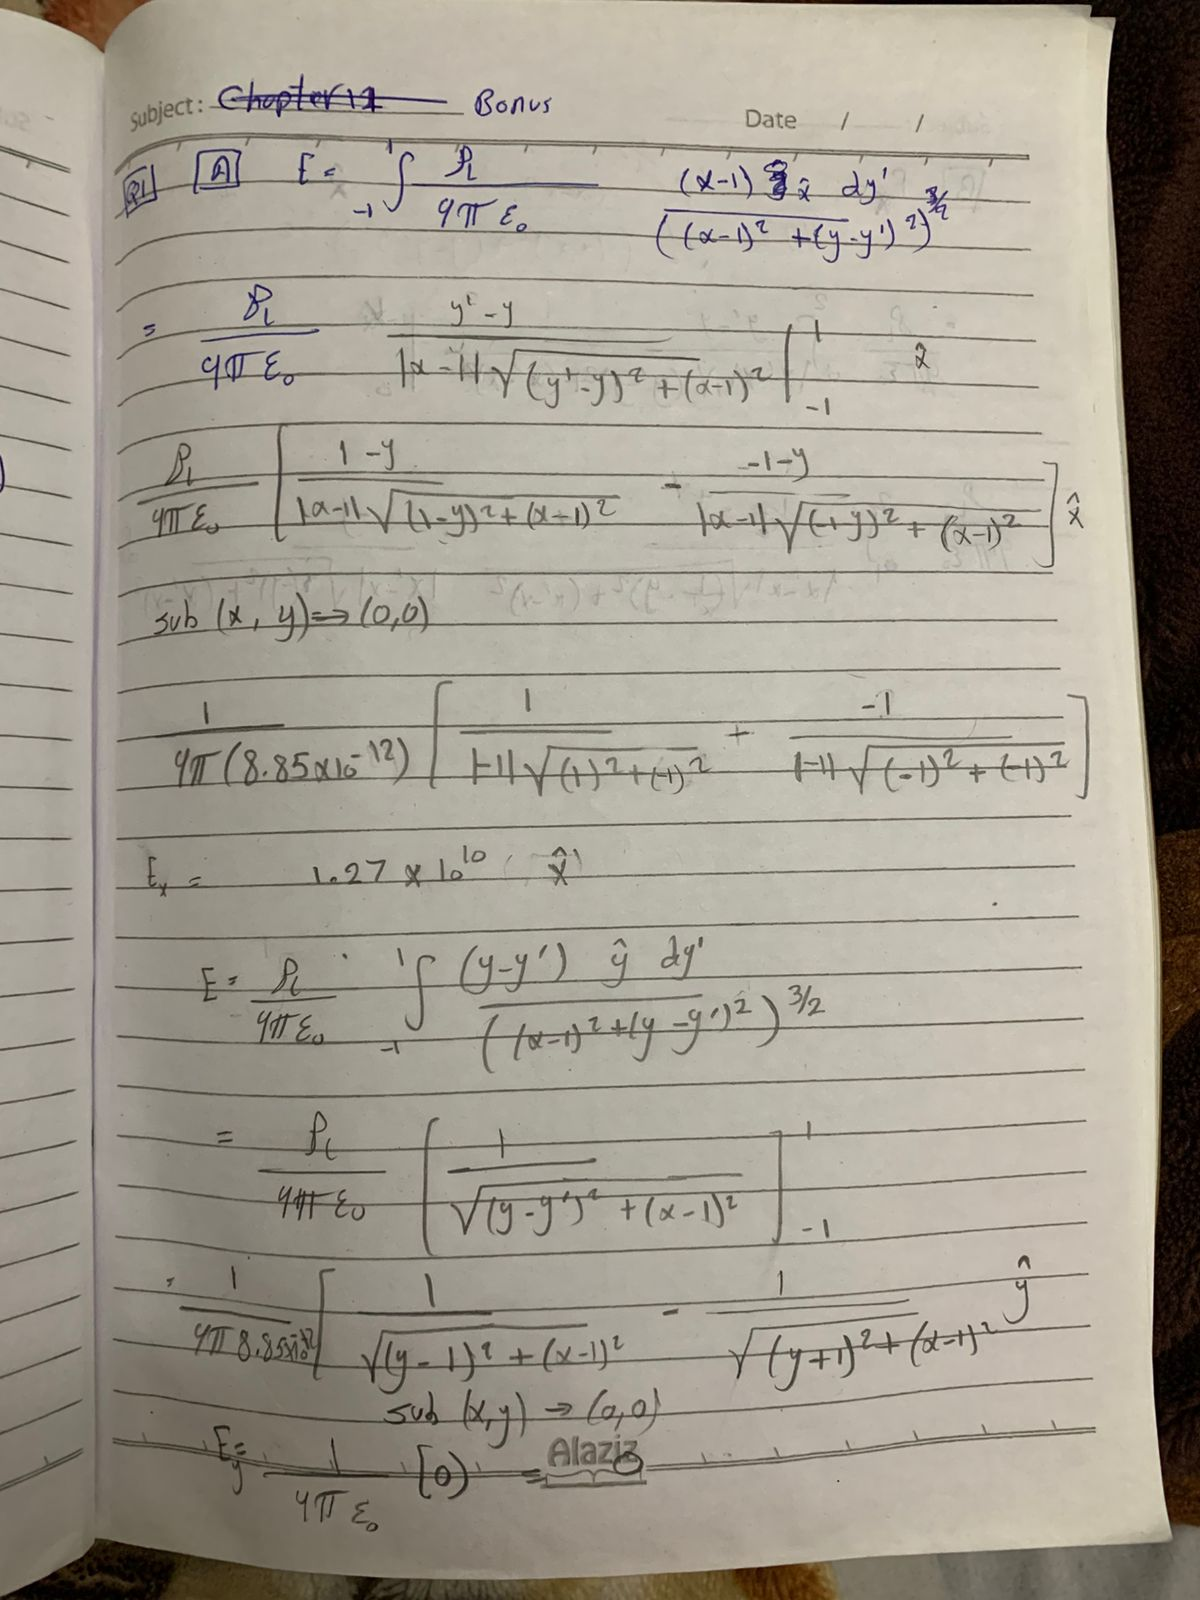 Subject: Chapter 11 Bonus
Date / /
Q1 A E = ∫_{-1}^{1} ρ_l / 4π ε₀ (x-1) x̂ dy' / ((x-1)² + (y-y')²)^{3/2}
= ρ_l / 4π ε₀ y'-y / |x-1| √((y'-y)² + (x-1)²) |_{-1}^{1} x̂
ρ_l / 4π ε₀ [ 1-y / |x-1| √((1-y)² + (x-1)²) - -1-y / |x-1| √((-1-y)² + (x-1)²) ] x̂
sub (x, y) ⇒ (0,0)
1 / 4π (8.85×10^{-12}) [ 1 / |-1| √((1)² + (-1)²) + -1 / |-1| √((-1)² + (-1)²) ]
E_x = 1.27 × 10^{10} x̂
E = ρ_l / 4π ε₀ ∫_{-1}^{1} (y-y') ŷ dy' / ((x-1)² + (y-y')²)^{3/2}
= ρ_l / 4π ε₀ [ 1 / √((y-y')² + (x-1)²) ]_{-1}^{1}
= 1 / 4π 8.85×10^{-12} [ 1 / √((y-1)² + (x-1)²) - 1 / √((y+1)² + (x-1)²) ŷ
sub (x,y) → (0,0)
E_y = 1 / 4π ε₀ [0] = 0
Alaziz